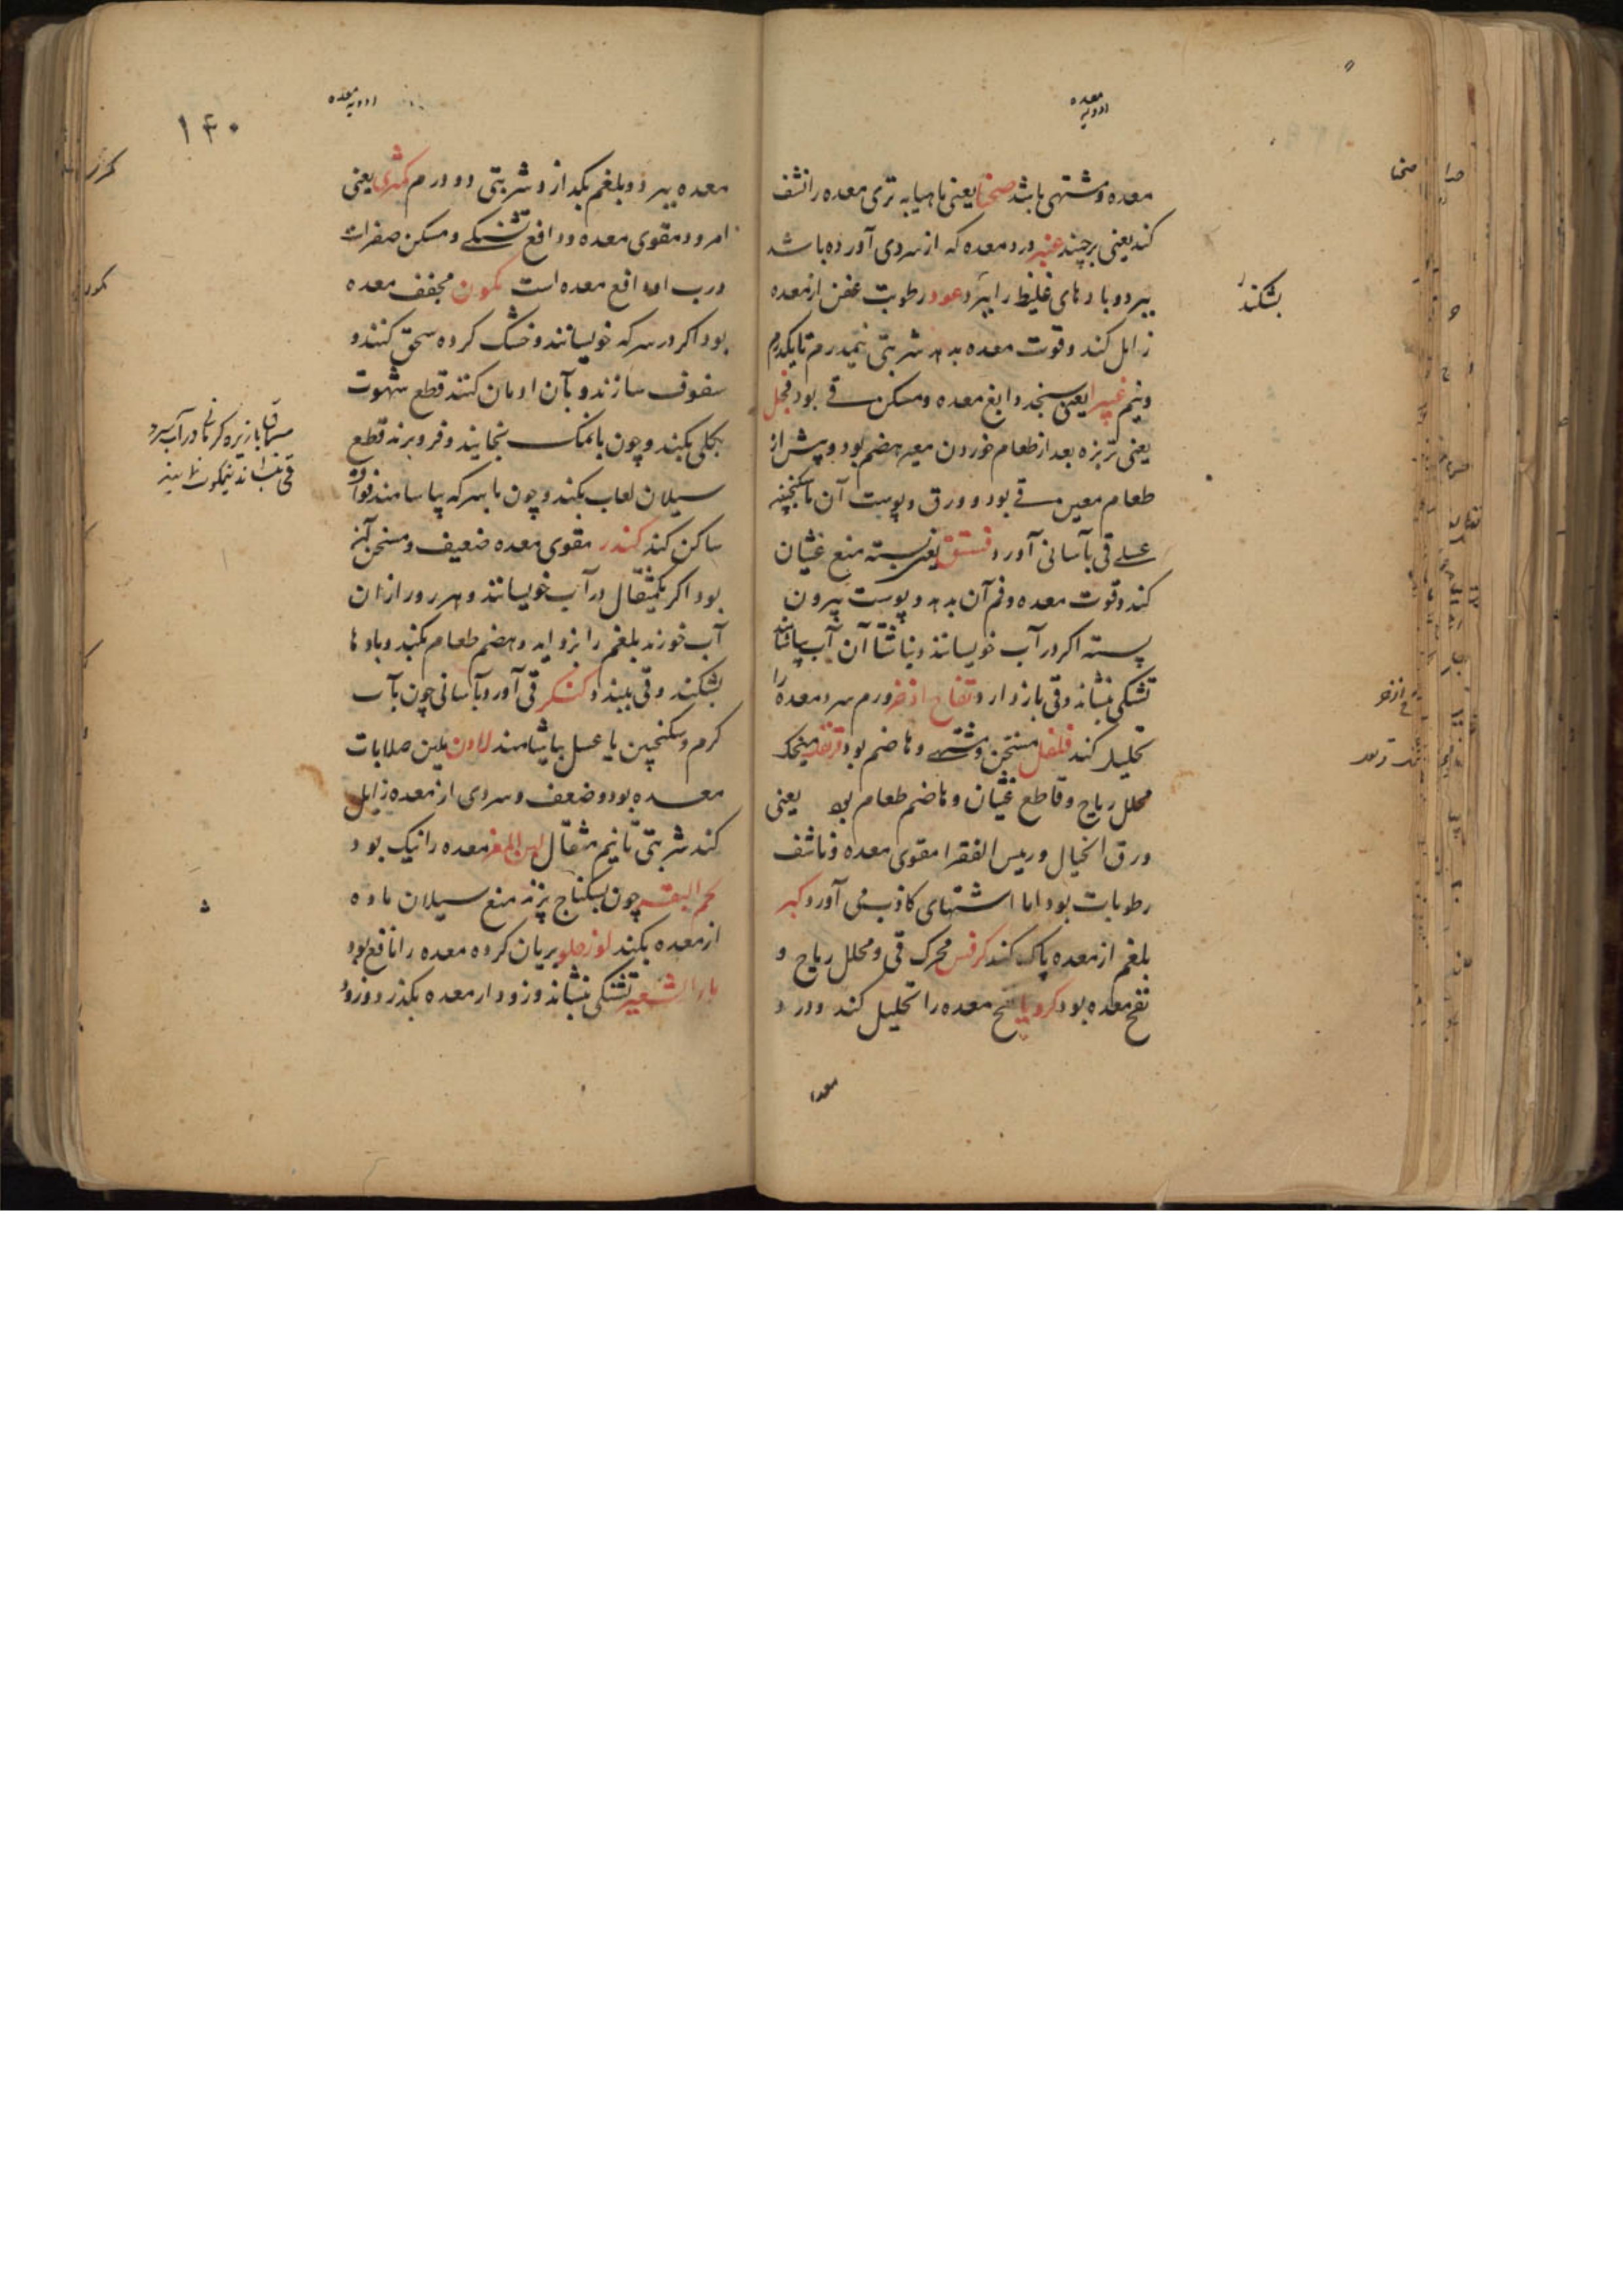 ادویه معده
معده و مشتهی باشد صحنا یعنی ماهیابه تری معده را نشف
کند یعنی برچیند عنبر درد معده که از سردی آورده باشد
ببرد و بادهای غلیظ را ببرد عود رطوبت عفن از معده
زایل کند و قوت معده بدهد شربتی نیمدرم تا یکدرم
و نیم غبیرا یعنی سنجد دابغ معده و مسکن قی بود فجل
یعنی تربزه بعد از طعام خوردن معین هضم بود و پیش از
طعام معین قی بود و ورق و پوست آن با سکنجبین
عسلی قی بآسانی آورد فستق یعنی پسته منع غثیان
کند و قوت معده و فم آن بدهد و پوست بیرون
پسته اگر در آب خویسانند و ناشتا آن آب بیاشامند
تشنگی بنشاند و قی باز دارد و تفاح اذخر ورم سرد معده را
تحلیل کند فلفل مسخن و مشتهی و هاضم بود قرنفل میخک
محلل ریاح و قاطع غثیان و هاضم طعام بود یعنی
ورق الخیال و رییس الفقرا مقوی معده و ناشف
رطوبات بود اما اشتهای کاذب می آورد کبر
بلغم از معده پاک کند کرفس محرک قی و محلل ریاح و
نفخ معده بود کرویا نفخ معده را تحلیل کند و درد
معده
بشکند
صحنا
ادویه معده
۱۴۰
معده ببرد و بلغم بگدازد شربتی دو درم کمثری یعنی
امرود مقوی معده و دافع تشنگی و مسکن صفراست
و رب او دافع معده است کمون مجفف معده
بود اگر در سرکه خویسانند و خشک کرده سحق کنند و
سفوف سازند و بآن ادمان کنند قطع شهوت
بکلی بکند و چون بانمک بخایند و فرو برند قطع
سیلان لعاب بکند و چون با سرکه بیاشامند فواق
ساکن کند کندر مقوی معده ضعیف و مسخن آن
بود اگر یکمثقال در آب خویسانند و هر روز از ان
آب خورند بلغم را بزداید و هضم طعام بکند و بادها
بشکند و قی ببندد کنگر قی آورد بآسانی چون بآب
گرم و سکنجبین یا عسل بیاشامند لادن ملین صلابات
معده بود و ضعف و سردی از معده زایل
کند شربتی تا نیم مثقال لبن الماعز معده را نیک بود
لحم البقر چون بسکباج پزند منع سیلان ماده
از معده بکند لوز حلو بریان کرده معده را نافع بود
ماء الشعیر تشنگی بنشاند و زود از معده بگذرد و زود